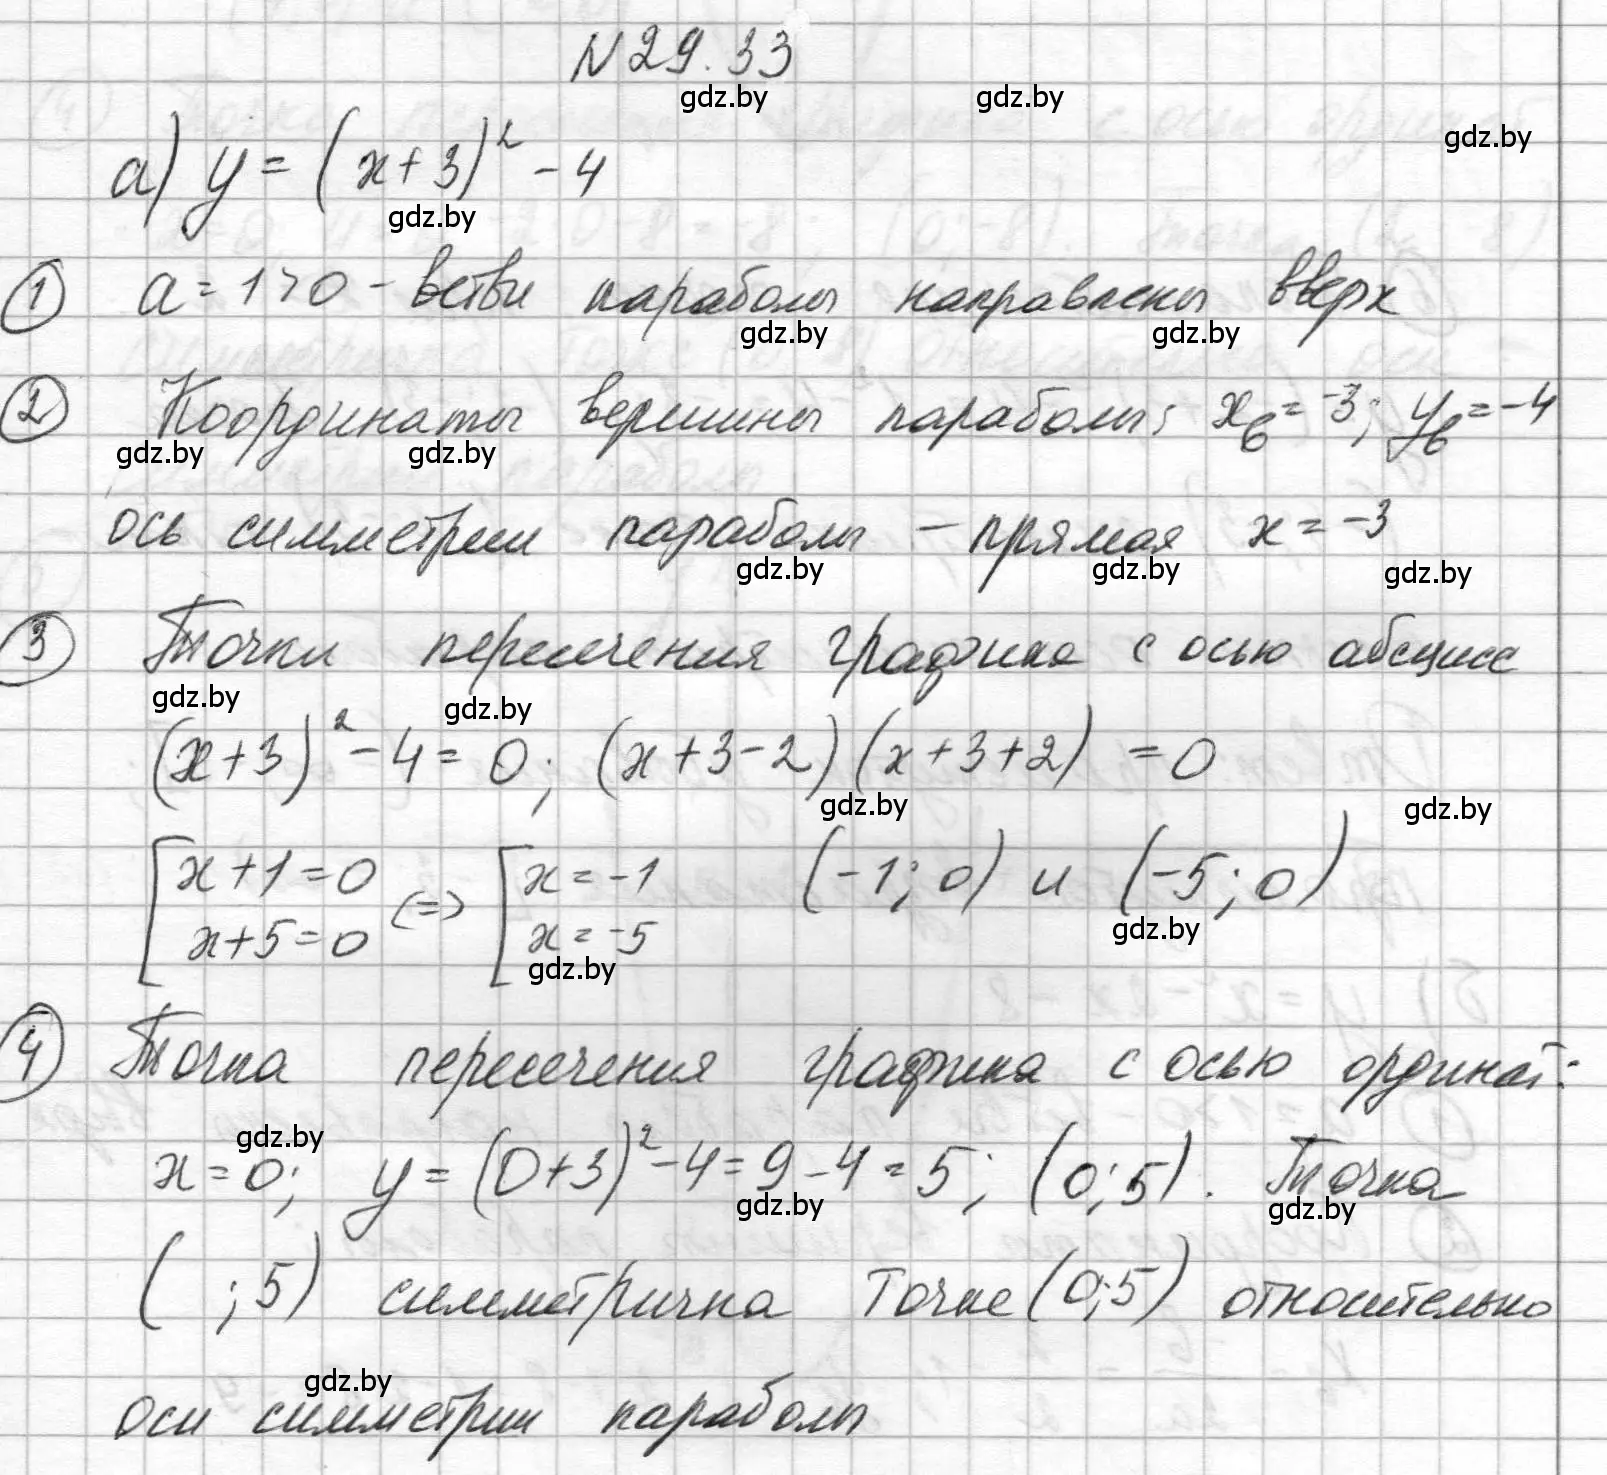 N 29.33
gdz.by gdz.by
gdz.by
а) y = (x+3)² - 4
gdz.by
① a = 1 > 0 - ветви параболы направлены вверх
gdz.by gdz.by
② Координаты вершины параболы; x_в = -3; y_в = -4
gdz.by gdz.by
ось симметрии параболы - прямая x = -3
gdz.by gdz.by gdz.by
③ Точки пересечения графика с осью абсцисс
gdz.by gdz.by
(x+3)² - 4 = 0; (x+3-2)(x+3+2) = 0
gdz.by gdz.by
[x+1=0 <=> [x=-1 (-1; 0) и (-5; 0)
[x+5=0 [x=-5
gdz.by
gdz.by
④ Точка пересечения графика с осью ординат:
gdz.by
x = 0; y = (0+3)² - 4 = 9 - 4 = 5; (0; 5). Точка
gdz.by gdz.by
( ; 5) симметрична точке (0; 5) относительно
gdz.by
оси симметрии параболы